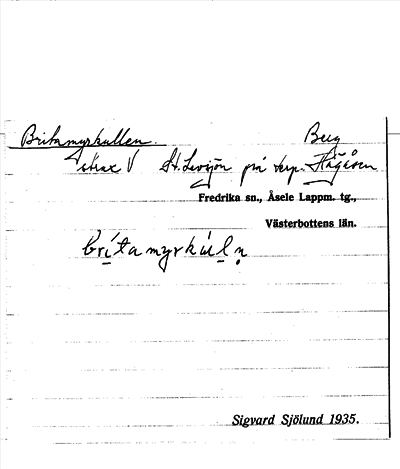 Britamyrkullen. Berg
strax V St. Levsjön på krp. Hågåsen
Fredrika sn., Åsele Lappm. tg.,
Västerbottens län.
britamyrkúln
Sigvard Sjölund 1935.